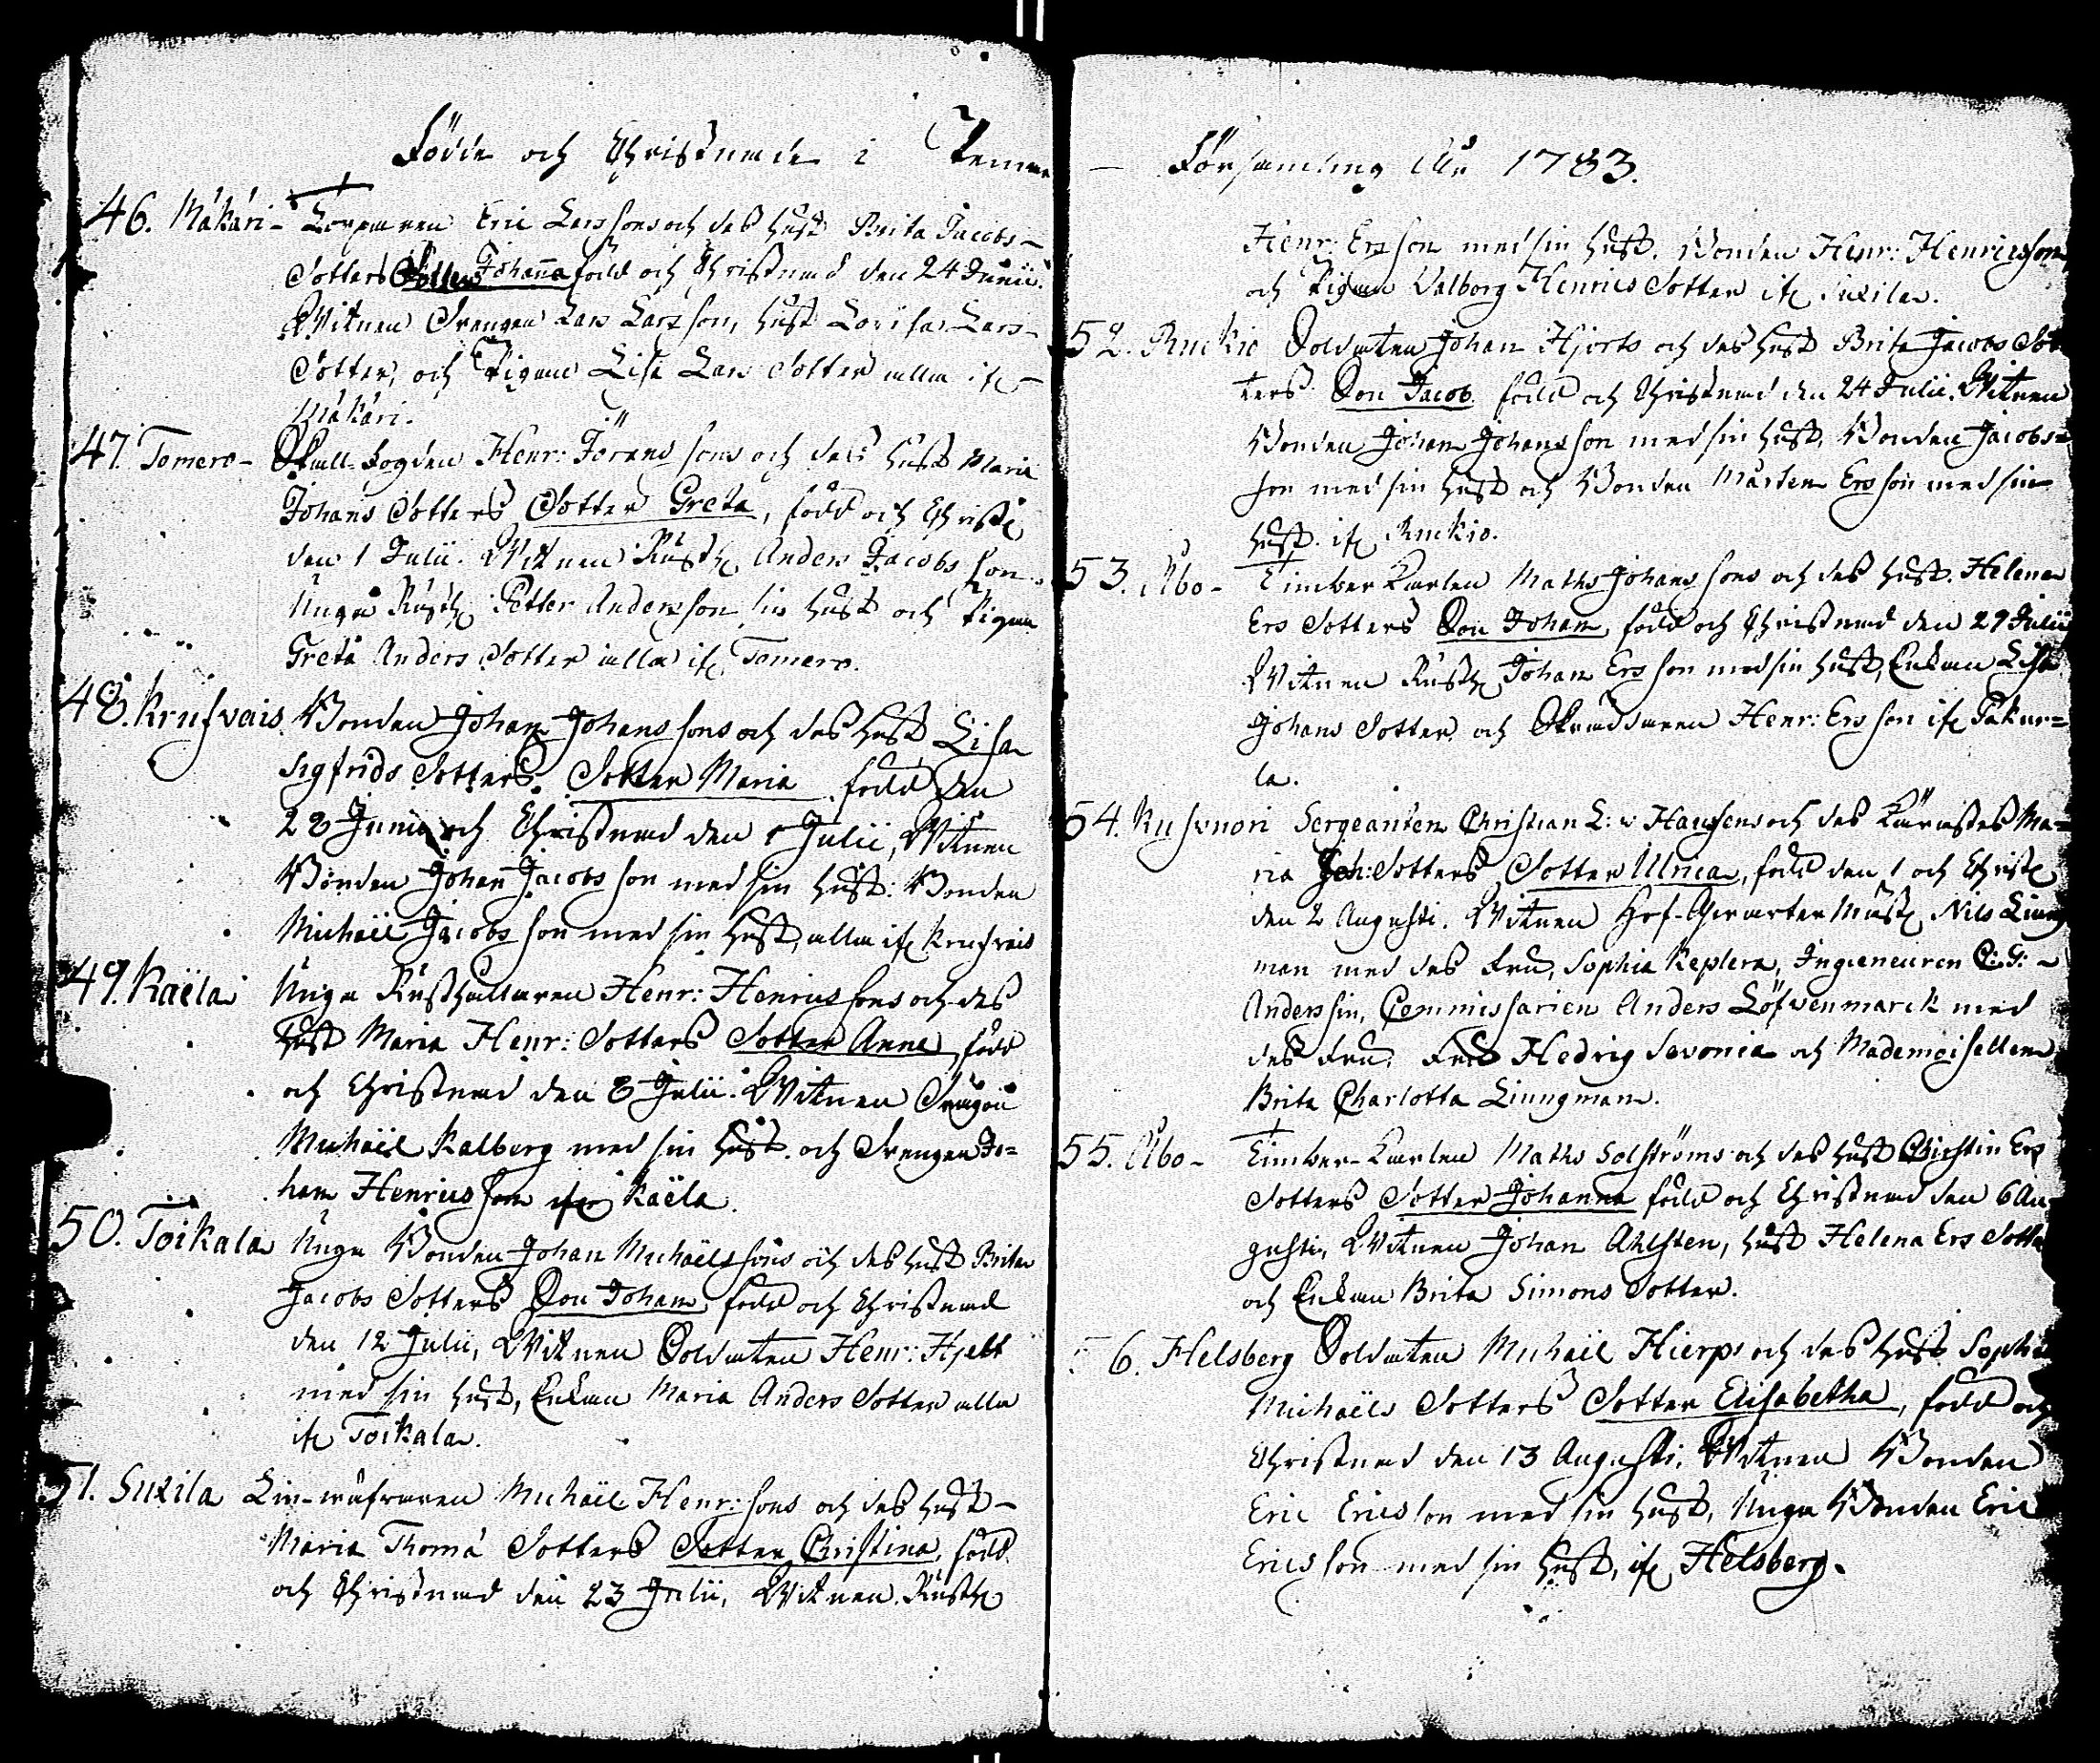 Födde och Christnade i Pemar
46. Måkäri - Torparen Eric Larssons och des Hust Brita Jacobs-
Dotters Dotter Johanna född och Christnad den 24 Junii.
Witnen Drengen Lars Larsson, Hust Lovisa Lars-
Dotter, och Pigan Lisa Lars Dotter alla if-
Måkäri.
47. Tomero - Fogden Henr: Jörans sons och des Hust Maria
Johans Dotters Dotter Greta, född och Christ
den 1 Julii. Witnen Rusth Anders Jacobs son
Unga Rusth Petter Andersson, sin Hust och Pigan
Greta Anders Dotter alla if Tomero.
48. Krufvais Bonden Johan Johans sons och des Hust Lisa
Sigfrids Dotters Dotter Maria född den
28 Junii och Christnad den 1 Julii, Witnen
Bonden Johan Jacobs son med sin Hust: Bonden
Michaël Jacobs son med sin Hust, alla if Krufvais
49. Kaëla Unga Rusthållaren Henr: Henrics sons och des
Hust Maria Henr: Dotters Dotter Anna, född
och Christnad den 8 Julii. Witnen Dragon
Michaël Kalberg med sin Hust. och Drengen Jo=
han Henrics son ifr Kaëla.
50. Toikala Unga Bonden Johan Michaëls sons och des Hust Brita
Jacobs Dotters Son Johan, född och Christnad
den 12 Julii, Witnen Soldaten Henr: Hjelt
med sin Hust, Enkan Maria Anders Dotter alla
if Toikala.
51. Suxila Michaël Henr: sons och des Hust-
Maria Thomä Dotters Dotter Christina, född
och Christnad den 23 Julii, Witnen Rusth
- Församling Åhr 1783.
Henr: Ersson med sin Hust. Bonden Henr: Henricsson
och Pigan Walborg Henrics Dotter if Suxila.
52. Ruckio Soldaten Johan Hjorts och des Hust Brita Jacobs Dot
ters Son Jacob född och Christnad den 24 Julii. Witnen
Bonden Johan Johansson med sin Hust, Bonden Jacobs=
son med sin Hust och Bonden Mårten Ersson med sin
Hust. if Ruckio.
53. Åbo - Timber Karlen Maths Johans sons och des Hust. Helena
Ers Dotters Son Johan, född och Christnad den 29 Julii
Witnen Rusth Johan Ersson med sin Hust, Enkan Lisa
Johans Dotter och Skräddaren Henr: Ersson if Pakur=
la.
54. Rusvnori Sergeanten Christian L: v Hausens och des Kärastes Ma=
ria Joh: Dotters Dotter Ulrica, född den 1 och Christ
den 2 Augusti. Witnen Hof-Qwarter Mäst Nils Liung
man med des Fru, Sophia Keplera, Ingeneuren C: G: -
Anderssin, Commissarien Anders Löfvenmarck med
des Fru, Fru Hedvig Sevonia och Mademoisellen
Brita Charlotta Liungman.
55. Åbo - Timber-Karlen Maths Solströms och des Hust Christin Ers
Dotters Dotter Johanna född och Christnad den 6 Au
gusti, Witnen Johan Ahlsten, Hust Helena Ers Dotter
och Enkan Brita Simons Dotter.
56. Helsberg Soldaten Michaël Hierps och des Hust Sophia
Michaëls Dotters Dotter Elisabetha, född och
Christnad den 13 Augusti. Witnen Bonden
Eric Ericsson med sin Hust, Unga Bonden Eric
Ericsson med sin Hust, if Helsberg.